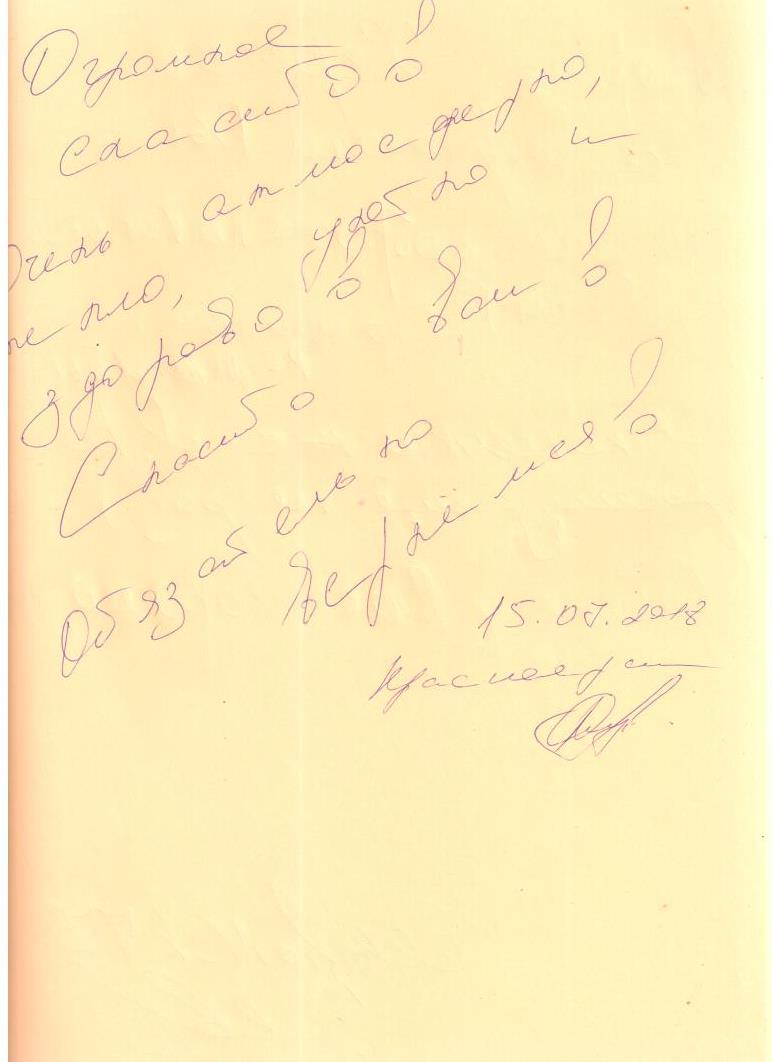 Огромное
спасибо!
Очень атмосферно,
тепло, уютно и
здорово!
Спасибо Вам!
Обязательно
вернёмся!
15.07.2018
Красноярск